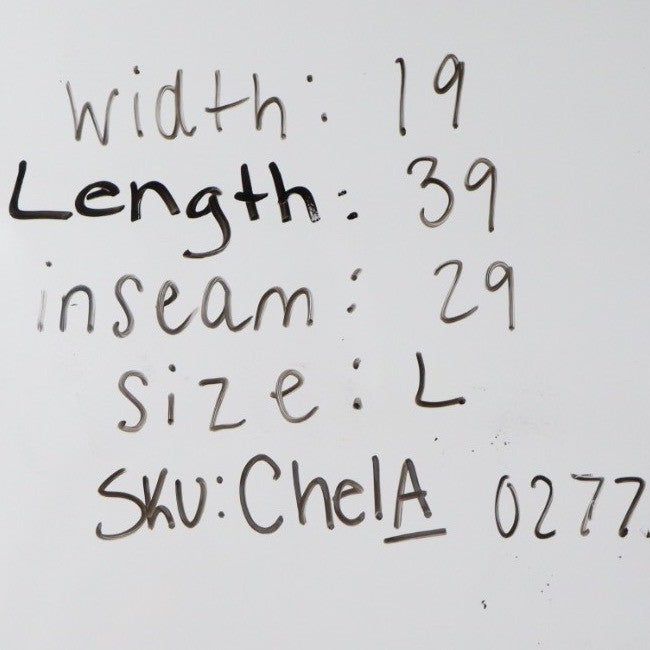 width: 19
Length: 39
inseam: 29
size: L
SKU: ChelA 0277